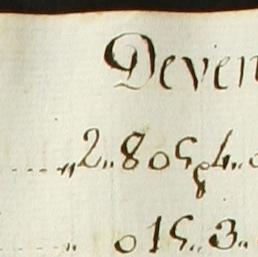 Deven
„2„805„4„
„015„3„